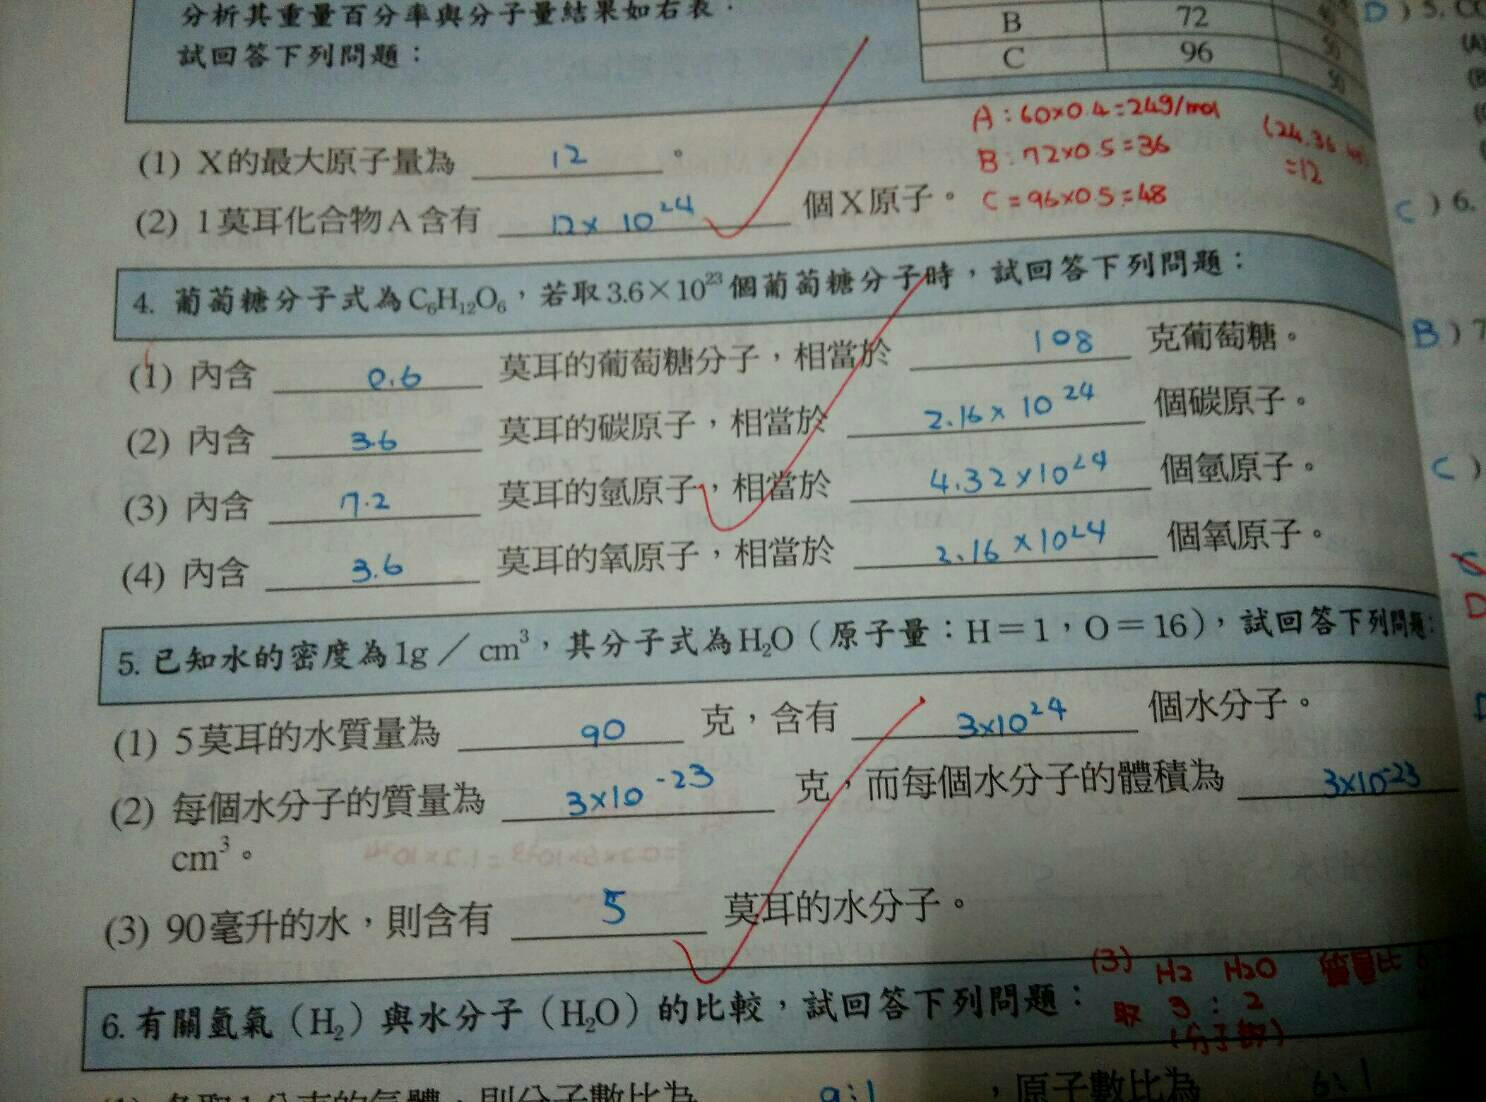 分析其重量百分率與分子量結果如右表。
試回答下列問題：
B 72
C 96 50
D ) 5.
A：60×0.4=24g/mol
B：72×0.5=36
C=96×0.5=48
(24.36.48)
=12
(1) X的最大原子量為 12 。
(2) 1莫耳化合物A含有 12×10²⁴ 個X原子。
C ) 6.
4. 葡萄糖分子式為C₆H₁₂O₆，若取3.6×10²³個葡萄糖分子時，試回答下列問題：
(1) 內含 0.6 莫耳的葡萄糖分子，相當於 108 克葡萄糖。
B ) 7
(2) 內含 3.6 莫耳的碳原子，相當於 2.16×10²⁴ 個碳原子。
(3) 內含 7.2 莫耳的氫原子，相當於 4.32×10²⁴ 個氫原子。
C )
(4) 內含 3.6 莫耳的氧原子，相當於 2.16×10²⁴ 個氧原子。
D
5. 已知水的密度為1g／cm³，其分子式為H₂O（原子量：H＝1，O＝16），試回答下列問題：
(1) 5莫耳的水質量為 90 克，含有 3×10²⁴ 個水分子。
(2) 每個水分子的質量為 3×10⁻²³ 克，而每個水分子的體積為 3×10⁻²³
cm³。
(3) 90毫升的水，則含有 5 莫耳的水分子。
(3) H₂ H₂O 質量比
取 3：2
(分子數)
6. 有關氫氣（H₂）與水分子（H₂O）的比較，試回答下列問題：
(1) 各取1公克的氣體，則分子數比為 9:1 ，原子數比為 6:1